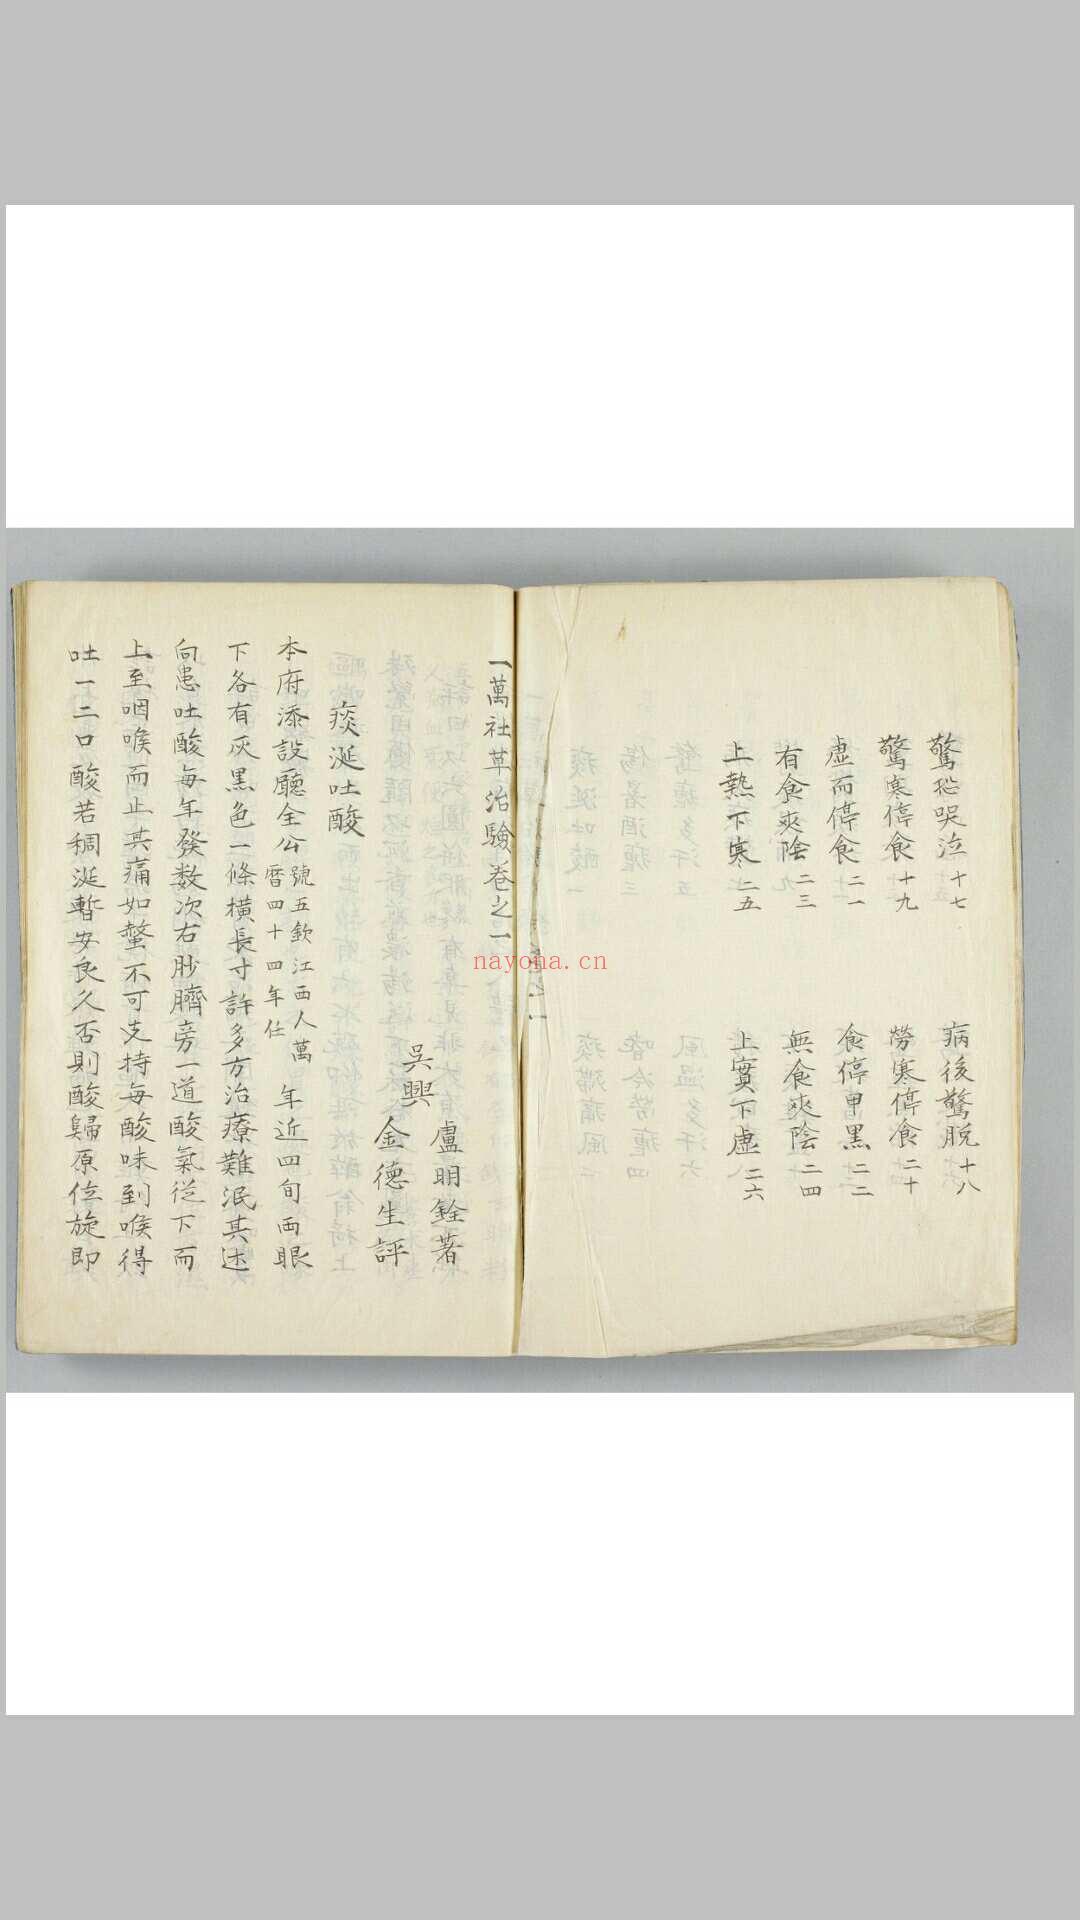 驚恐哭泣十七
病後驚脫十八
驚寒停食十九
勞寒停食二十
虛而停食二一
食停甲黑二二
有食夾陰二三
無食夾陰二四
上熱下寒二五
上實下虛二六
一萬社草治驗卷之一
吳興
盧明銓著
金德生評
痰涎吐酸
本府添設廳全公號五欽江西人萬曆四十四年任年近四旬両眼
下各有灰黑色一條橫長寸許多方治療難泯其述
向患吐酸每年發数次右脇臍旁一道酸氣從下而
上至咽喉而止其痛如螫不可支持每酸味到喉得
吐一二口酸若稠涎暫安良久否則酸歸原位旋即
nayona.cn